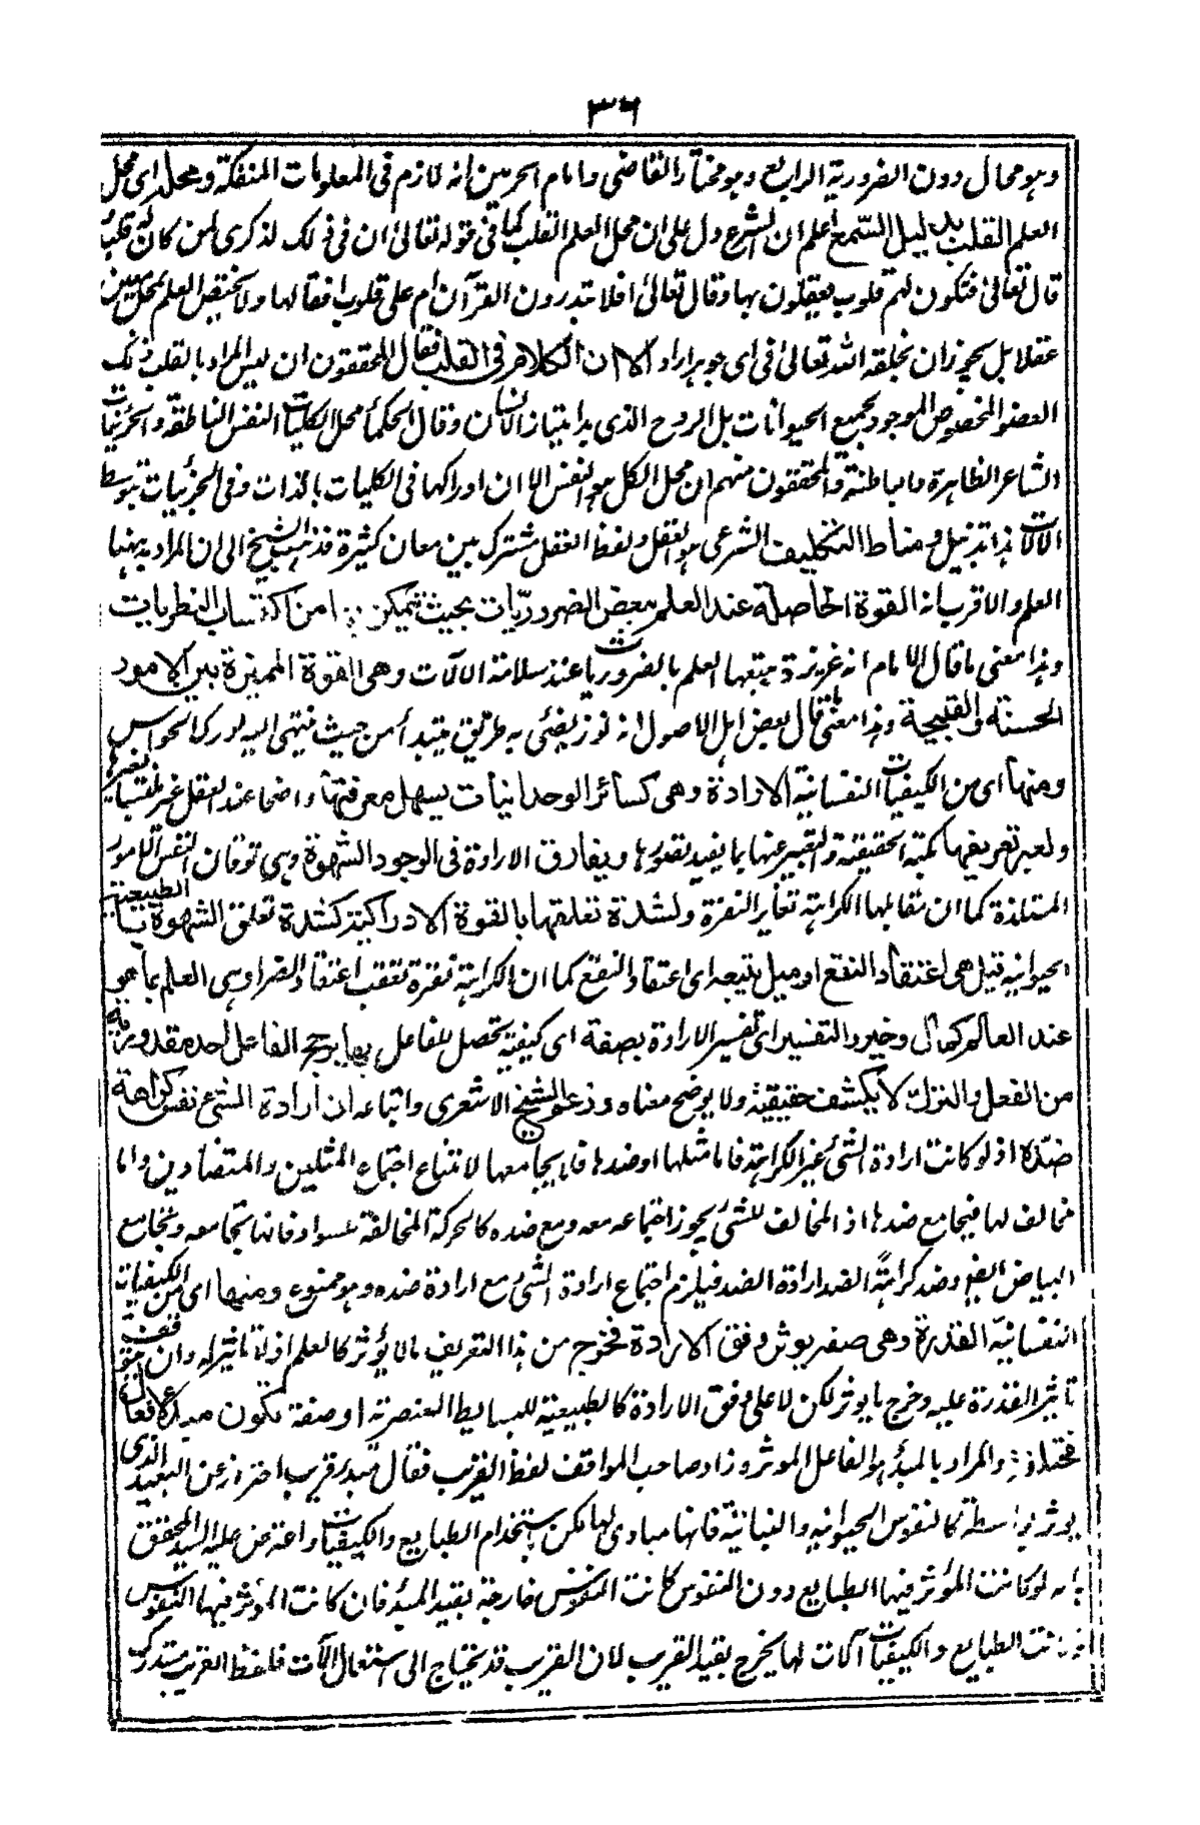 ٣٦
وهو محال دون الضرورية الرابع وهو مختار القاضي وامام الحرمين انه لازم في المعلومات المنفكة ومحله اى محل
العلم القلب بدليل السمع اعلم ان الشرع دل على ان محل العلم القلب كما في قوله تعالى ان في ذلك لذكرى لمن كان له قلب
قال تعالى فتكون لهم قلوب يعقلون بها وقال تعالى افلا يتدبرون القرآن ام على قلوب اقفالها ولا يختص العلم بمحل معين
عقلا بل يجوز ان يخلقه الله تعالى في اى جوهر اراد الا ان الكلام في القلب فقال المحققون ان ليس المراد بالقلب ذلك
العضو المخصوص الموجود بجميع الحيوانات بل الروح الذى به امتياز الانسان وقال الحكماء محل الكليات النفس الناطقة والجزئيات
المشاعر الظاهرة والباطنة والمحققون منهم ان محل الكل هو النفس الا ان ادراكها في الكليات بالذات وفي الجزئيات بتوسط
الآلات هذا تذييل ومناط التكليف الشرعى هو العقل ولفظ العقل مشترك بين معان كثيرة فذهب الشيخ الى ان المراد به ههنا
العلم والاقرب انه القوة الحاصلة عند العلم ببعض الضروريات بحيث يتمكن بها من اكتساب النظريات
وهذا معنى ما قال الامام انه غريزة يتبعها العلم بالضروريات عند سلامة الآلات وهى القوة المميزة بين الامور
الحسنة والقبيحة وهذا معنى ما قال بعض اهل الاصول انه نور يضئ به طريق يبتدأ من حيث ينتهى اليه درك الحواس
ومنها اى من الكيفيات النفسانية الارادة وهى كسائر الوحدانيات يسهل معرفتها واضحا عند العقل غير ملتبسة بغيرها
ولعسر تعريفها بكنه الحقيقة والتعبير عنها بما يفيد تصورها ويفارق الارادة في الوجود الشهوة وهى توقان النفس الى الامور
المستلذة كما ان مقابلها الكراهة تغاير النفرة ولشدة تعلقها بالقوة الادراكية كشدة تعلق الشهوة بالطبيعة
الحيوانية قيل هى اعتقاد النفع او ميل يتبعه اى اعتقاد النفع كما ان الكراهة نفرة تعقب اعتقاد الضر او هى العلم بما هو
عند العالم كمال وخير والتفسير اى تفسير الارادة بصفة اى كيفية تحصل للفاعل بها يرجح الفاعل احد مقدوريه
من الفعل والترك لا يكشف حقيقته ولا يوضح معناه وزعم الشيخ الاشعرى واتباعه ان ارادة الشئ نفس كراهة
ضده اذ لو كانت ارادة الشئ غير الكراهة فاما مثلها او ضدها فلا يجامعها لامتناع اجتماع المثلين والمتضادين واما
مخالف لها فيجامع ضدها اذ المخالف للشئ يجوز اجتماعه معه ومع ضده كالحركة المخالفة للسواد فانها تجامعه وتجامع
البياض ايضا وضد كراهة الضد ارادة الضد فيلزم اجتماع ارادة الشئ مع ارادة ضده وهو ممنوع ومنها اى من الكيفيات
النفسانية القدرة وهى صفة يؤثر وفق الارادة فخرج من هذا التعريف ما لا يؤثر كالعلم اذ لا تاثير له وان توقف
تاثير القدرة عليه وخرج ما يوثر لكن لا على وفق الارادة كالطبيعية للبسايط العنصرية او صفة تكون مبدأ لافعال
مختلفة والمراد بالمبدأ هو الفاعل الموثر وزاد صاحب المواقف لفظ القريب فقال مبدأ قريب احتراز عن البعيد الذى
يوثر بواسطة كالنفوس الحيوانية والنباتية فانها مبادى لها لكن باستخدام الطبايع والكيفيات واعترض عليه السيد المحقق
بانه لو كانت المؤثر فيها الطبايع دون النفوس كانت النفوس خارجة بقيد المبدأ فان كانت الموثر فيها النفوس
وكانت الطبايع والكيفيات آلات لها يخرج بقيد القريب لان القريب قد يحتاج الى استعمال الآلات فلفظ القريب مستدرك